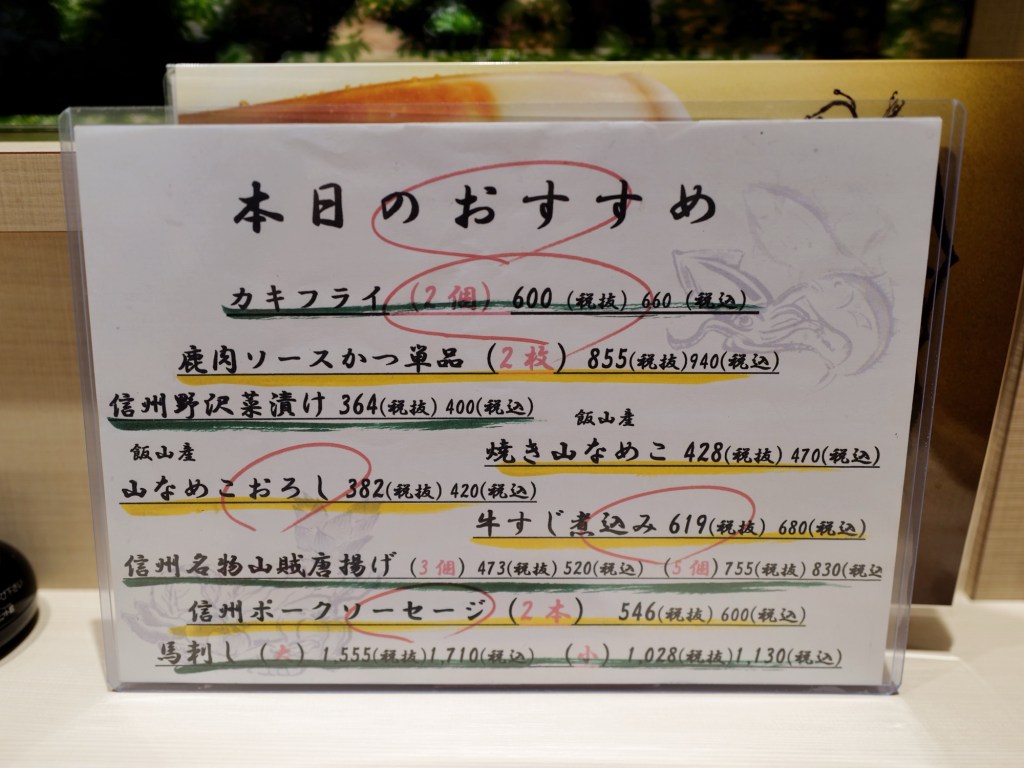 本日のおすすめ
カキフライ（2個） 600（税抜）660（税込）
鹿肉ソースかつ単品（2枚） 855(税抜)940(税込)
信州野沢菜漬け 364(税抜) 400(税込)
飯山産
焼き山なめこ 428(税抜) 470(税込)
飯山産
山なめこおろし 382(税抜) 420(税込)
牛すじ煮込み 619(税抜) 680(税込)
信州名物山賊唐揚げ（3個）473(税抜) 520(税込)（5個）755(税抜) 830(税込
信州ポークソーセージ（2本） 546(税抜) 600(税込)
馬刺し（大） 1,555(税抜)1,710(税込)（小） 1,028(税抜)1,130(税込)